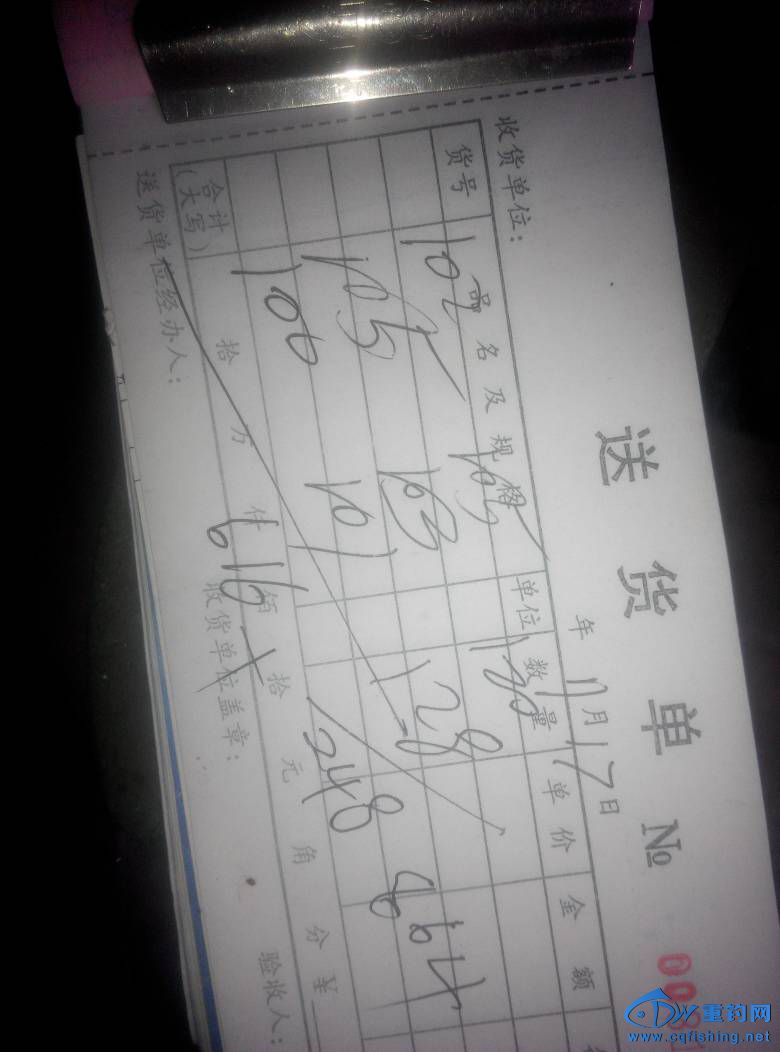 送货单 № 008
收货单位: 年 11月17日
货号 品名及规格 单位 数量 单价 金额
102 105 120
105 103 128
100 101 248
664
616
合计(大写) 拾 万 仟 佰 拾 元 角 分 ¥
送货单位经办人: 收货单位盖章: 验收人:
重钓网
www.cqfishing.net